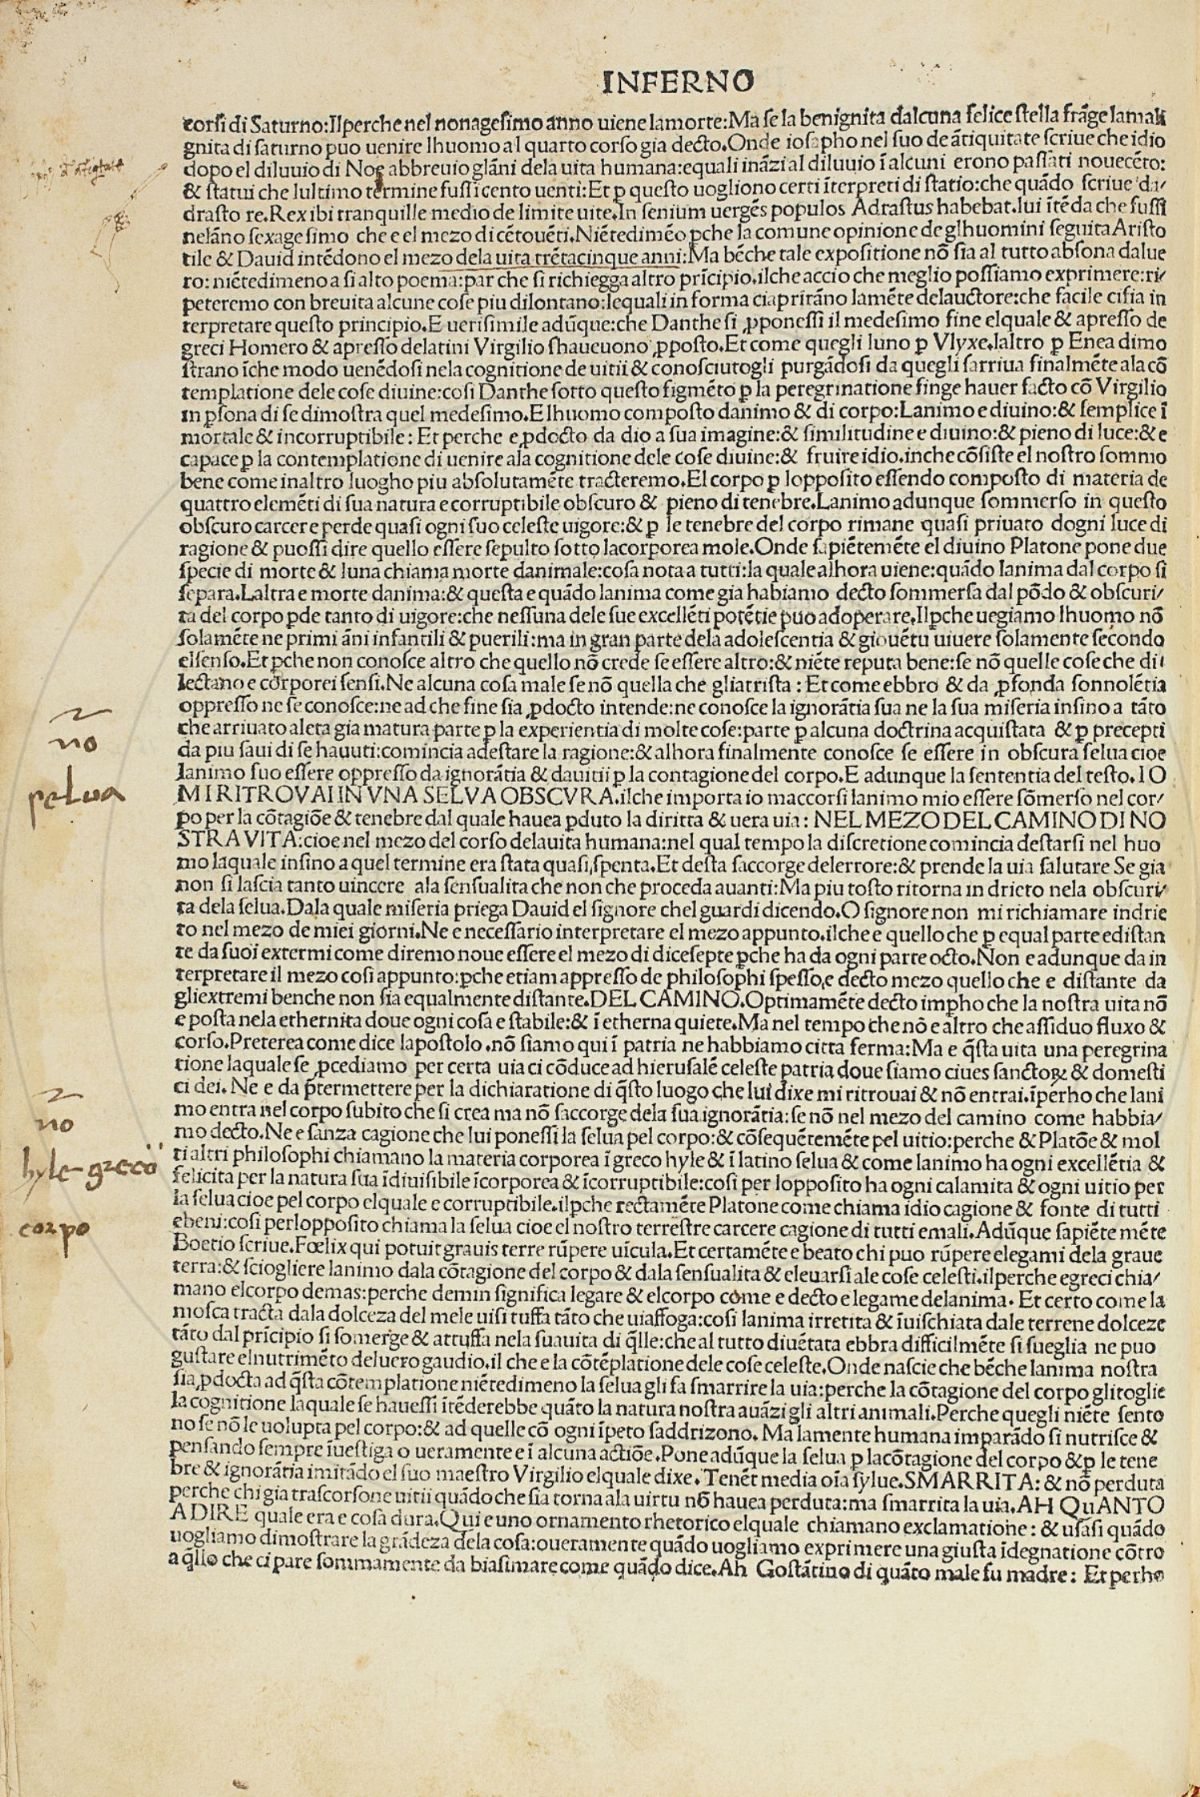 INFERNO
corsi di Saturno:Ilperche nel nonagesimo anno uiene lamorte:Ma se la benignita dalcuna felice stella frãge la mali
gnita di saturno puo uenire lhuomo al quarto corso gia decto.Onde iosapho nel suo de ãtiquitate scriue che idio
dopo el diluuio di Noe abbreuio glãni dela uita humana:equali inãzi al diluuio ĩ alcuni erono passati nouecẽto:
& statui che lultimo termine fussi cento uenti:Et ꝑ questo uogliono certi ĩterpreti di statio:che quãdo scriue da/
drasto re.Rex ibi tranquille medio de limite uite.In senium uergẽs populos Adrastus habebat.lui ĩtẽda che fussi
nelãno sexagesimo che e el mezo di cẽtouẽti.Niẽtedimẽo ꝑche la comune opinione de glhuomini seguita Aristo
tile & Dauid intẽdono el mezo dela uita trẽtacinque anni:Ma bẽche tale expositione nõ sia al tutto absona dal ue
ro:niẽtedimeno a si alto poema:par che si richiegga altro prĩcipio.ilche accio che meglio possiamo exprimere:ri/
peteremo con breuita alcune cose piu dilontano:lequali in forma ciaprirãno lamẽte delauctore:che facile cisia in
terpretare questo principio.E uerisimile adũque:che Danthe si ꝓponessi il medesimo fine elquale & apresso de
greci Homero & apresso delatini Virgilio shaueuono ꝓposto.Et come quegli luno ꝑ Vlyxe.laltro ꝑ Enea dimo
strano ĩche modo uenẽdosi nela cognitione de uitii & conosciutogli purgãdosi da quegli sarriua finalmẽte ala cõ
templatione dele cose diuine:cosi Danthe sotto questo figmẽto ꝑ la peregrinatione finge hauer facto cõ Virgilio
in ꝑsona di se dimostra quel medesimo.E lhuomo composto danimo & di corpo:Lanimo e diuino:& semplice ĩ
mortale & incorruptibile: Et perche e ꝓdocto da dio a sua imagine:& similitudine e diuino:& pieno di luce:& e
capace ꝑ la contemplatione di uenire ala cognitione dele cose diuine:& fruire idio.inche cõsiste el nostro sommo
bene come inaltro luogho piu absolutamẽte tracteremo.El corpo ꝑ lopposito essendo composto di materia de
quattro elemẽti di sua natura e corruptibile obscuro & pieno di tenebre.Lanimo adunque sommerso in questo
obscuro carcere perde quasi ogni suo celeste uigore:& ꝑ le tenebre del corpo rimane quasi priuato dogni luce di
ragione & puossi dire quello essere sepulto sotto lacorporea mole.Onde sapiẽtemẽte el diuino Platone pone due
specie di morte & luna chiama morte danimale:cosa nota a tutti:la quale alhora uiene:quãdo lanima dal corpo si
separa.Laltra e morte danima:& questa e quãdo lanima come gia habiamo decto sommersa dal põdo & obscuri/
ta del corpo ꝑde tanto di uigore:che nessuna dele sue excellẽti potẽtie puo adoperare.Ilꝑche uegiamo lhuomo nõ
solamẽte ne primi ãni infantili & puerili:ma in gran parte dela adolescentia & giouẽtu uiuere solamente secõndo
elsenso.Et ꝑche non conosce altro che quello nõ crede se essere altro:& niẽte reputa bene:se nõ quelle cose che di/
lectano e corporei sensi.Ne alcuna cosa male se nõ quella che gliatrista: Et come ebbro & da ꝓfonda sonnolẽtia
oppresso ne se conosce:ne ad che fine sia ꝓdocto intende:ne conosce la ignorãtia sua ne la sua miseria insino a tãto
che arriuato aleta gia matura parte ꝑ la experientia di molte cose:parte ꝑ alcuna doctrina acquistata & ꝑ precepti
da piu saui di se hauuti:comincia adestare la ragione:& alhora finalmente conosce se essere in obscura selua cioe
lanimo suo essere oppresso da ignorãtia & dauitii ꝑ la contagione del corpo.E adunque la sententia del testo.IO
MI RITROVAI IN VNA SELVA OBSCVRA.ilche importa io maccorsi lanimo mio essere sõmerso nel cor/
po per la cõtagiõe & tenebre dal quale hauea ꝑduto la diritta & uera uia: NEL MEZO DEL CAMINO DI NO
STRA VITA:cioe nel mezo del corso dela uita humana:nel qual tempo la discretione comincia destarsi nel huo
mo laquale insino a quel termine era stata quasi spenta.Et desta saccorge delerrore:& prende la uia salutare Se gia
non si lascia tanto uincere ala sensualita che non che proceda auanti:Ma piu tosto ritorna in drieto nela obscuri/
ta dela selua.Dala quale miseria priega Dauid el signore chel guardi dicendo.O signore non mi richiamare indrie
to nel mezo de miei giorni.Ne e necessario interpretare el mezo appunto.ilche e quello che ꝑ equal parte e distan
te da suoi extermi come diremo noue essere el mezo di dicesepte ꝑche ha da ogni parte octo.Non e adunque da in
terpretare il mezo cosi appunto:ꝑche etiam appresso de philosophi spesso e decto mezo quello che e distante da
gliextremi benche non sia equalmente distante.DEL CAMINO.Optimamẽte decto imꝑho che la nostra uita nõ
e posta nela ethernita doue ogni cosa e stabile:& ĩ etherna quiete.Ma nel tempo che nõ e altro che assiduo fluxo &
corso.Preterea come dice lapostolo.nõ siamo qui ĩ patria ne habbiamo citta ferma:Ma e q̃sta uita una peregrina
tione laquale se ꝓcediamo per certa uia ci cõduce ad hierusalẽ celeste patria doue siamo ciues sanctoꝝ & domesti
ci dei. Ne e da p̃termettere per la dichiaratione di q̃sto luogo che lui dixe mi ritrouai & nõ entrai.ĩperho che lani
mo entra nel corpo subito che si crea ma nõ saccorge dela sua ignorãtia:se nõ nel mezo del camino come habbia/
mo decto.Ne e sanza cagione che lui ponessi la selua pel corpo:& cõsequẽtemẽte pel uitio:perche & Platõe & mol
ti altri philosophi chiamano la materia corporea ĩ greco hyle & ĩ latino selua & come lanimo ha ogni excellẽtia &
felicita per la natura sua ĩdiuisibile ĩcorporea & ĩcorruptibile:cosi per lopposito ha ogni calamita & ogni uitio per
la selua cioe pel corpo elquale e corruptibile.ilꝑche rectamẽte Platone come chiama idio cagione & fonte di tutti
ebeni:cosi perlopposito chiama la selua cioe el nostro terrestre carcere cagione di tutti emali.Adũque sapiẽte mẽte
Boetio scriue.Fœlix qui potuit grauis terre rũpere uĩcula.Et certamẽte e beato chi puo rũpere elegami dela graue
terra:& sciogliere lanimo dala cõtagione del corpo & dala sensualita & eleuarsi ale cose celesti.ilperche egreci chia/
mano elcorpo demas:perche demin significa legare & elcorpo come e decto e legame delanima. Et certo come la
mosca tracta dala dolceza del mele uisi tuffa tãto che uiaffoga:cosi lanima irretita & ĩuischiata dale terrene dolceze
tãto dal prĩcipio si somerge & attuffa nela suauita di q̃lle:che al tutto diuẽtata ebbra difficilmẽte si sueglia ne puo
gustare elnutrimẽto deluero gaudio.il che e la cõtẽplatione dele cose celeste.Onde nascie che bẽche lanima nostra
sia ꝓdocta ad q̃sta cõtemplatione niẽtedimeno la selua gli fa smarrire la uia:perche la cõtagione del corpo gli toglie
la cognitione laquale se hauessi ĩtẽderebbe quãto la natura nostra auãzi gli altri animali.Perche quegli niẽte sento
no se nõ le uolupta pel corpo:& ad quelle cõ ogni ĩpeto saddrizono. Ma lamente humana imparãdo si nutrisce &
pensando sempre ĩuestiga o ueramente e ĩ alcuna actiõe.Pone adũque la selua ꝑ lacõtagione del corpo & ꝑ le tene
bre & ignorãtia imitãdo el suo maestro Virgilio elquale dixe. Tenẽt media oĩa sylue.SMARRITA: & nõ perduta
perche chi gia trascorsone uitii quãdo che sia torna ala uirtu nõ hauea perduta:ma smarrita la uia.AH QuANTO
A DIRE quale era e cosa dura.Qui e uno ornamento rhetorico elquale chiamano exclamatione: & usasi quãdo
uogliamo dimostrare la grãdeza dela cosa:oueramente quãdo uogliamo exprimere una giusta ĩdegnatione cõtro
a q̃llo che ci pare sommamente da biasimare come quãdo dice.Ah Gostãtino di quãto male fu madre: Et perho
no
selua
no
hyle greco
corpo